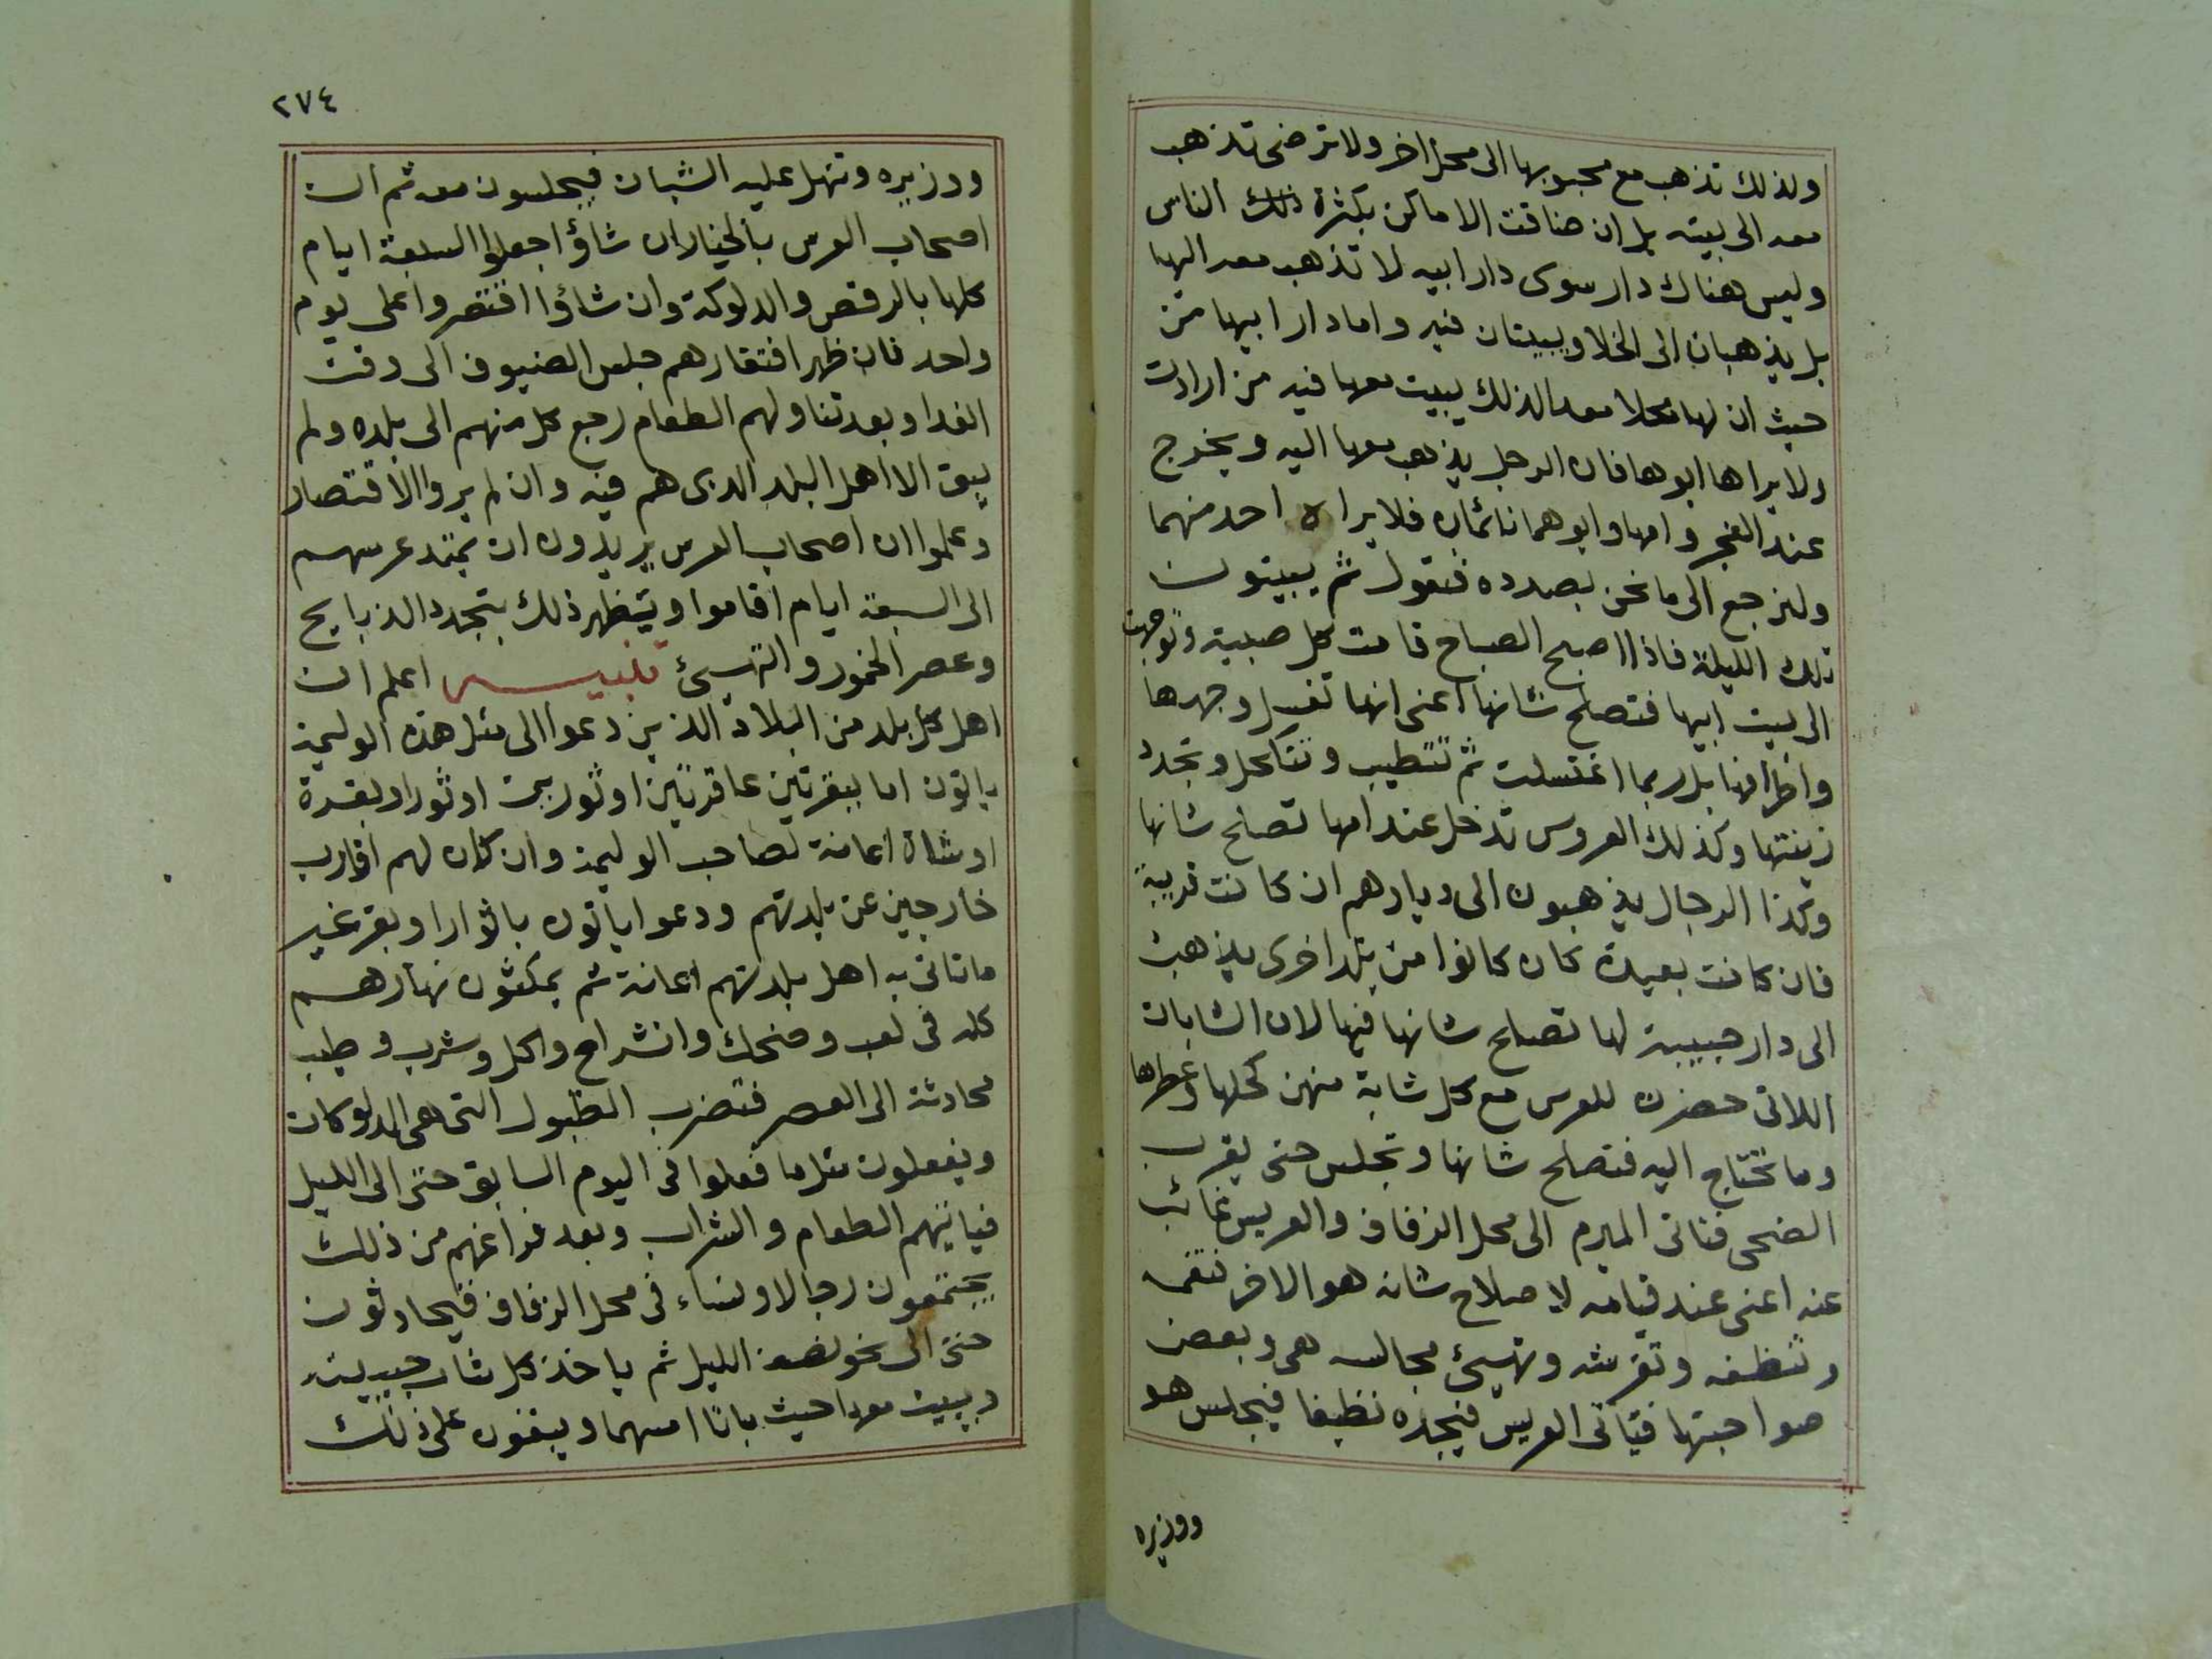 ولذلك تذهب مع محبوبها الى محل اخر ولا ترضى تذهب
معه الى بيته بل ان ضاقت الاماكن بكثرة ذلك الناس
وليس هناك دار سوى دار ابيه لا تذهب معه اليها
بل يذهبان الى الخلا ويبيتان فيه واما دار ابيها فمن
حيث ان لها محلا معدا لذلك يبيت معها فيه من ارادت
ولا يراها ابوها فان الرجل يذهب معها اليه ويخرج
عند الفجر وامها وابوهما نائمان فلا يراه احد منهما
ولنرجع الى ما نحن بصدده فنقول ثم يبيتون
تلك الليلة فاذا اصبح الصباح قامت كل صبية وتوجهت
الى بيت ابيها فتصلح شانها اعنى انها تغسل وجهها
واطرافها بل ربما اغتسلت ثم تتطيب وتتكحل وتجدد
زينتها وكذلك العروس تدخل عند امها تصلح شانها
وكذا الرجال يذهبون الى ديارهم ان كانت قريبة
فان كانت بعيدة كان كانوا من بلد اخرى يذهب
الى دار حبيبته لها تصلح شانها فيها لان الشابات
اللاتى حضرن للعرس مع كل شابة منهن كحلها وعطرها
وما تحتاج اليه فتصلح شانها وتجلس حتى يقرب
الضحى فتاتى الميرم الى محل الزفاف والعريس غائب
عنه اعنى عند قيامه لاصلاح شانه هو الاخر فتقمه
وتنظفه وتفرشه وتهيئ مجالسه هى وبعض
صواحبتها فياتى العريس فيجده نظيفا فيجلس هو
ووزيره
٢٧٤
ووزيره وتنهل عليه الشبان فيجلسون معه ثم ان
اصحاب العرس بالخيار ان شاؤ اجعلوا السبعة ايام
كلها بالرقص والدلوكة وان شاؤا اقتصروا على يوم
واحد فان ظهر افتقارهم جلس الضيوف الى وقت
الغدا وبعد تناولهم الطعام رجع كل منهم الى بلده ولم
يبق الا اهل البلد الذى هم فيه وان لم يروا الاقتصار
وعلموا ان اصحاب العرس يريدون ان يمتد عرسهم
الى السبعة ايام اقاموا ويظهر ذلك بتجدد الذبايح
وعصر الخمور والتهيئ تنبيه اعلم ان
اهل كل بلد من البلاد الذين دعوا الى مثل هذه الوليمة
ياتون اما ببقرتين عاقرتين او ثورين او ثور او بقرة
او شاة اعانة لصاحب الوليمة وان كان لهم اقارب
خارجين عن بلدتهم ودعوا ياتون باثوار او بقر غير
ما تاتى به اهل بلدتهم اعانة ثم يمكثون نهارهم
كله فى لعب وضحك وانشراح واكل وشرب وطيب
محادثة الى العصر فتضرب الطبول التى هى الدلوكات
ويفعلون مثل ما فعلوا فى اليوم السابق حتى الى الليل
فياتيهم الطعام والشراب وبعد فراغهم من ذلك
يجتمعون رجالا ونساء فى محل الزفاف فيتحادثون
حتى الى نحو نصف الليل ثم ياخذ كل شاب حبيبته
ويبيت معها حيث باتا امسهما ويبقون على ذلك